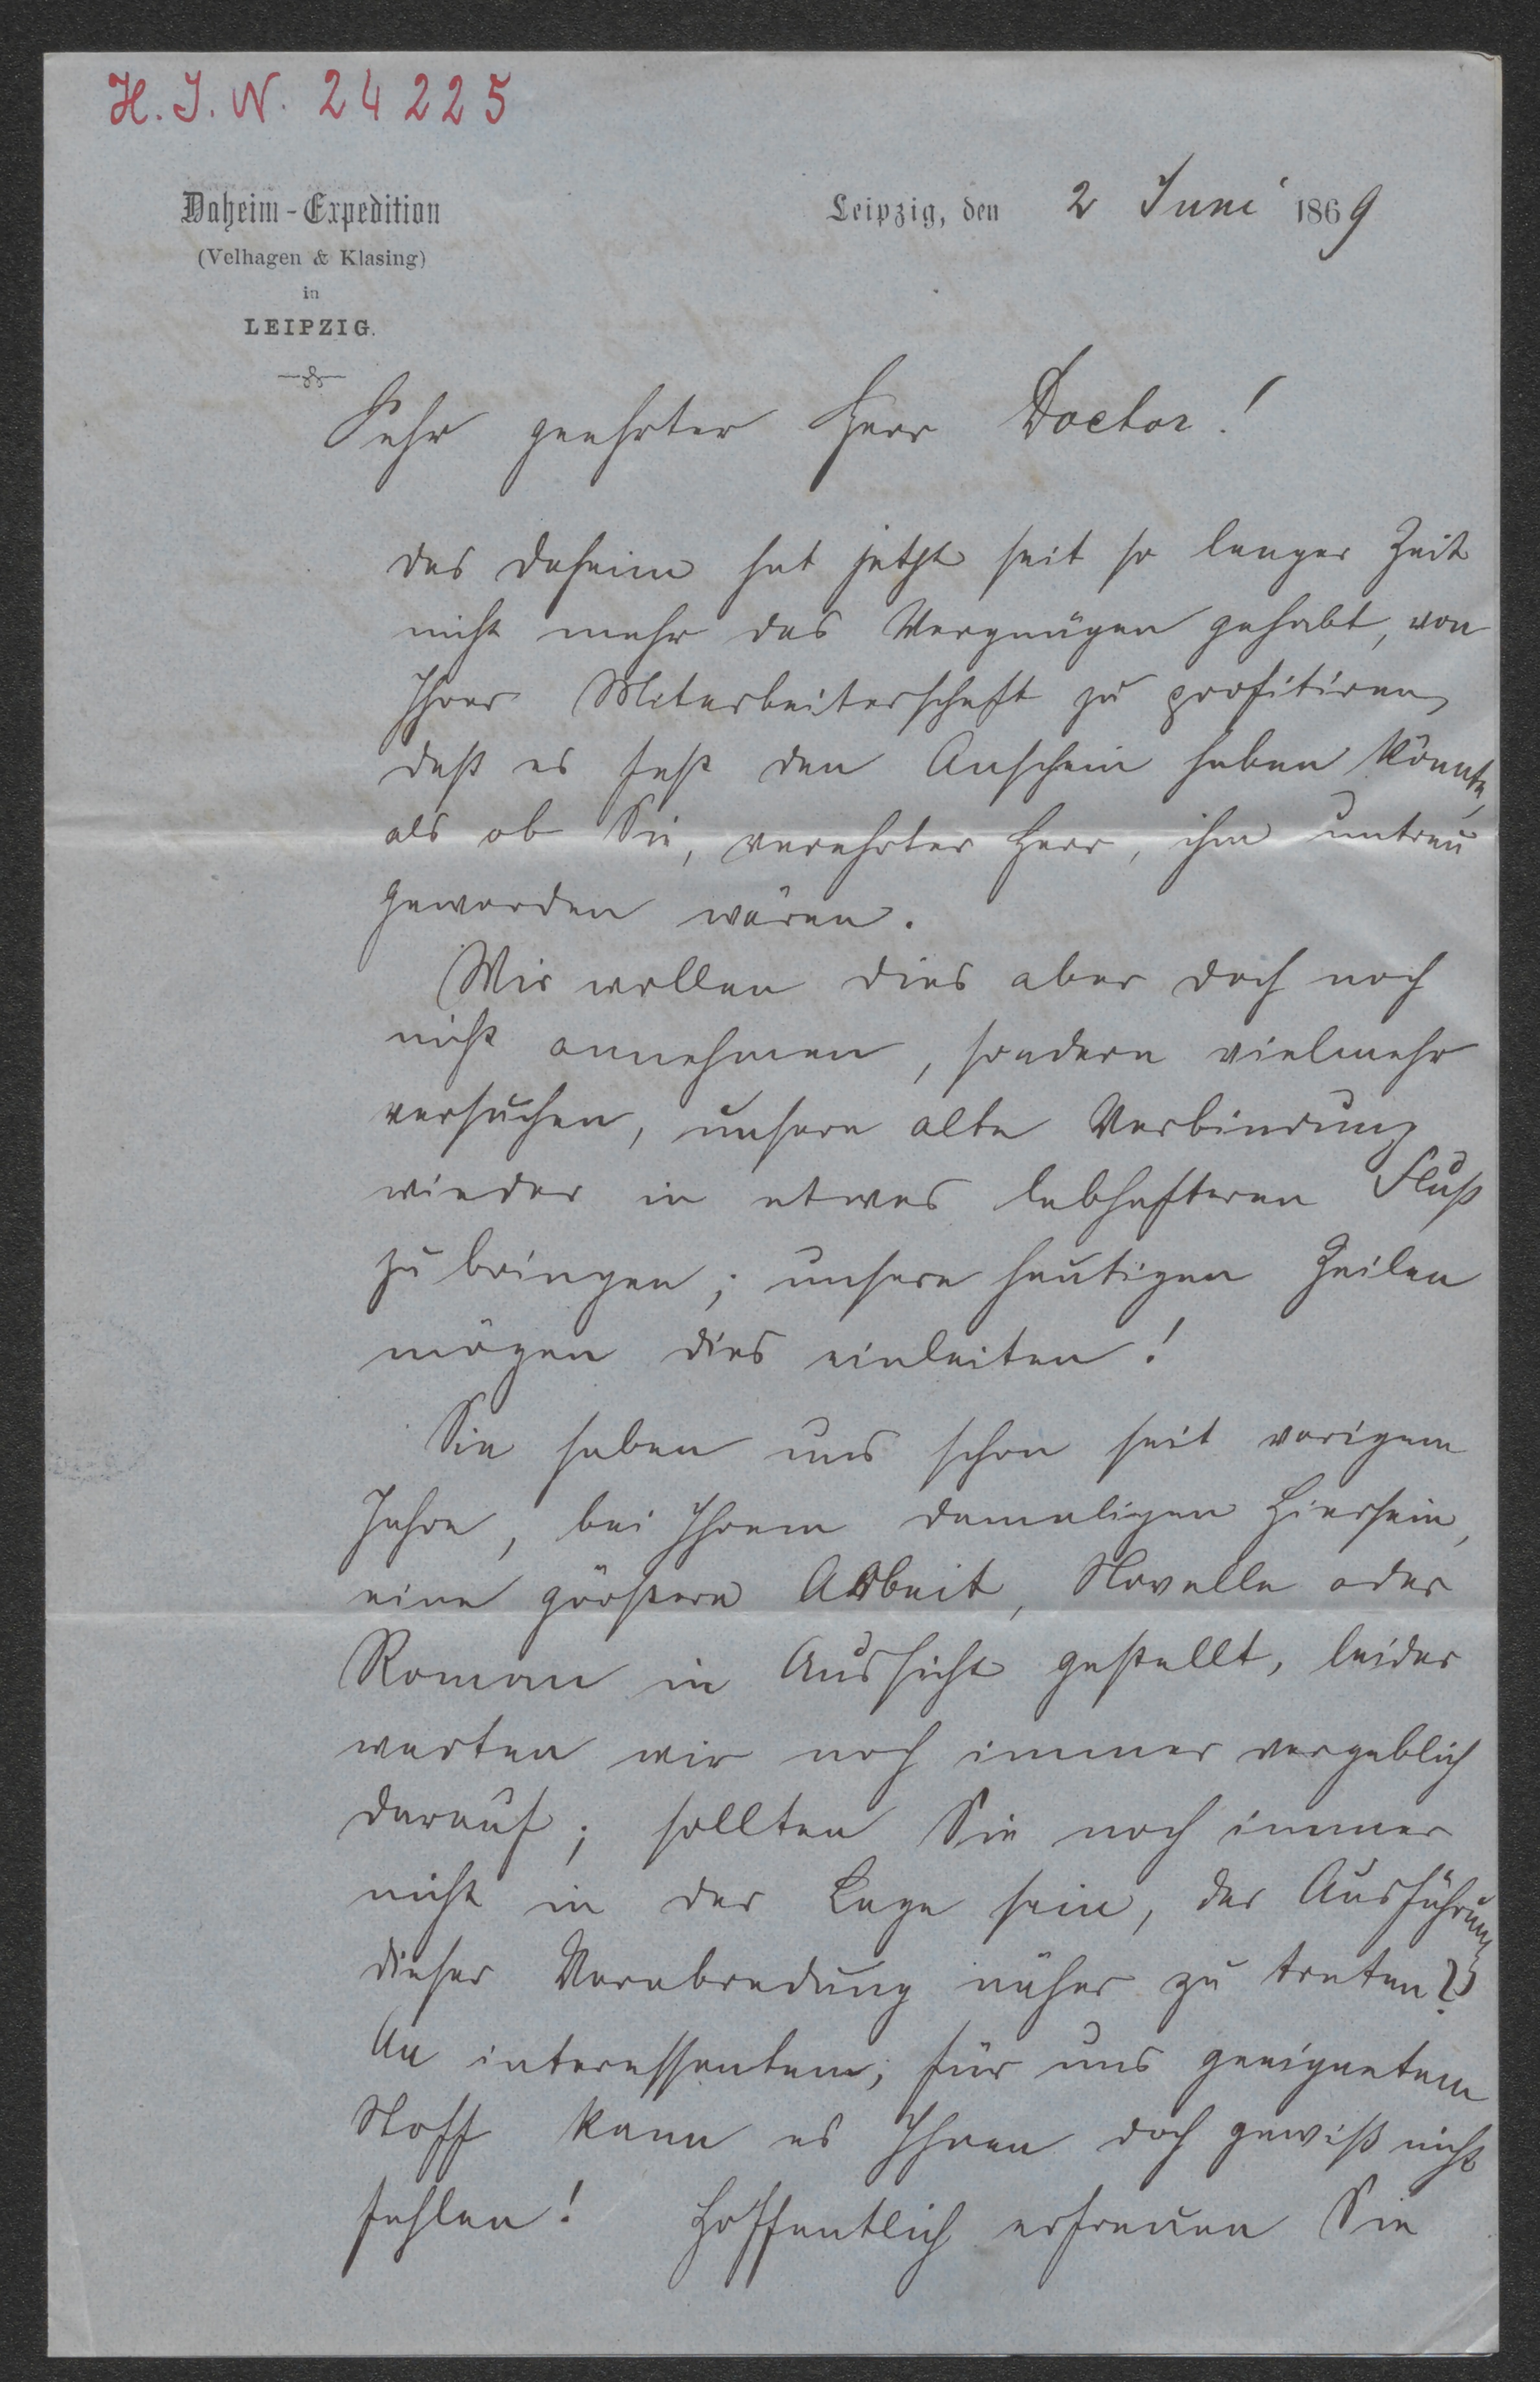 H. I. N. 24225
Daheim-Expedition
(Velhagen & Klasing)
in
LEIPZIG.
Leipzig, den 2 Juni 1869
Sehr geehrter Herr Doctor!
das Daheim hat jetzt seit so langer Zeit
nicht mehr das Vergnügen gehabt, von
Ihrer Mitarbeiterschaft zu profitiren,
daß es fast den Anschein haben könnte,
als ob Sie, verehrter Herr, ihm untreu
geworden wären.
Wir wollen dies aber doch noch
nicht annehmen, sondern vielmehr
versuchen, unsere alte Verbindung
wieder in etwas lebhafteren Fluß
zu bringen; unsere heutigen Zeilen
mögen dies einleiten!
Sie haben uns schon seit vorigem
Jahre, bei Ihrem damaligen Hiersein,
eine größere Arbeit, Novelle oder
Roman in Aussicht gestellt, leider
warten wir noch immer vergeblich
darauf; sollten Sie noch immer
nicht in der Lage sein, der Ausführung
dieser Verabredung näher zu treten?
An interessantem, für uns geeignetem
Stoff kann es Ihnen doch gewiß nicht
fehlen! Hoffentlich erfreuen Sie